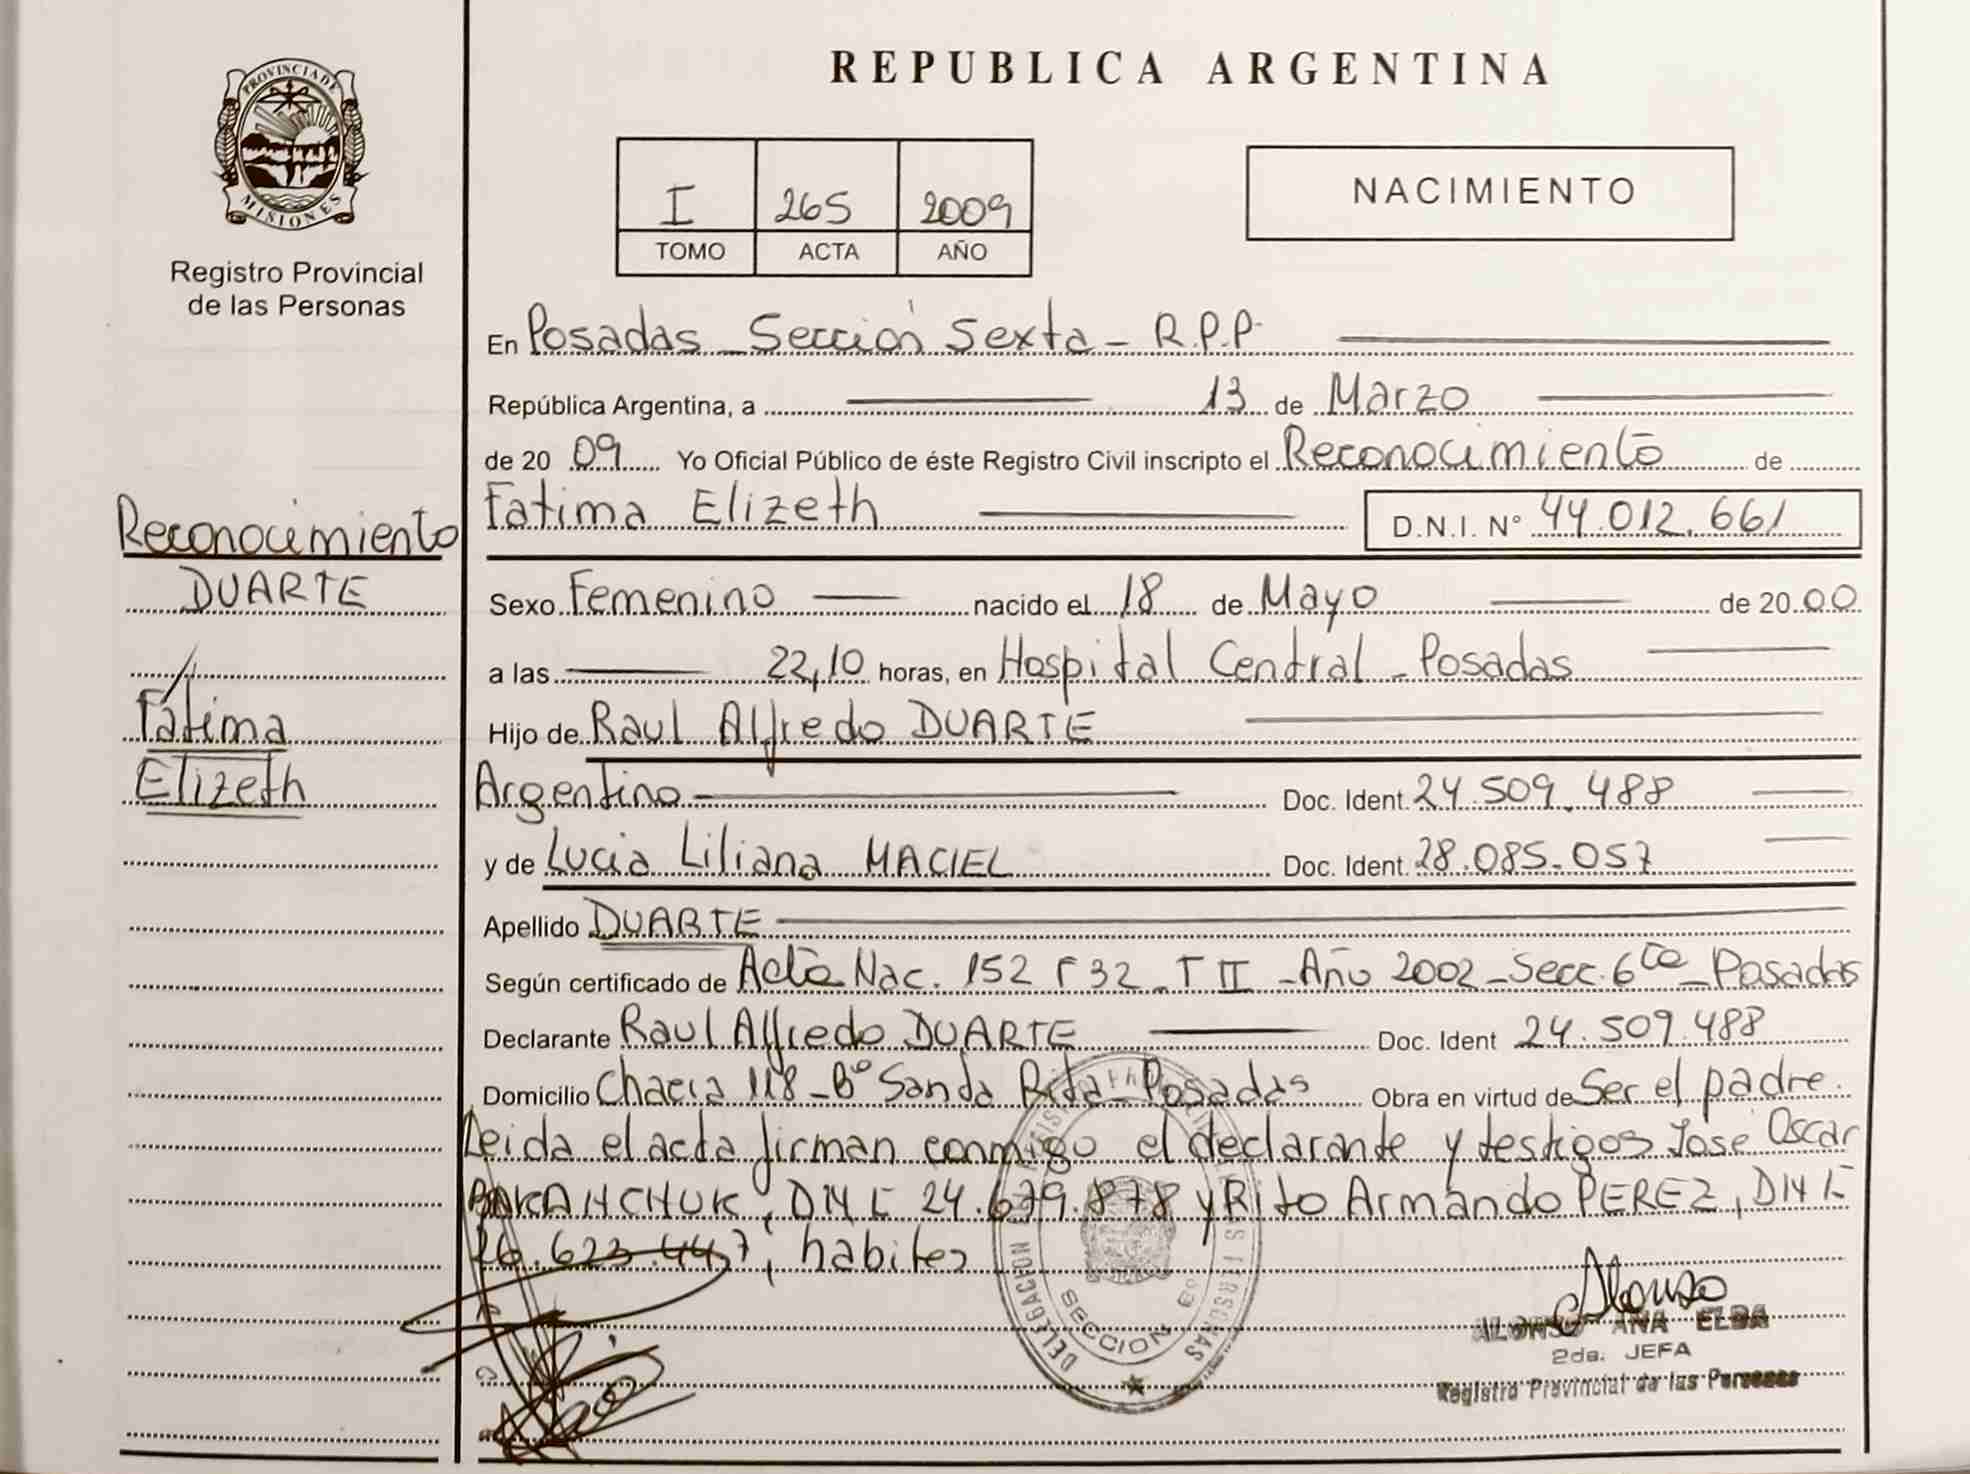 PROVINCIA DE
MISIONES
Registro Provincial
de las Personas
Reconocimiento
DUARTE
Fatima
Elizeth
REPUBLICA ARGENTINA
I 265 2009
TOMO ACTA AÑO
NACIMIENTO
En Posadas _ Sección Sexta _ R.P.P.
República Argentina, a 13 de Marzo
de 20 09 Yo Oficial Público de éste Registro Civil inscripto el Reconocimiento de
Fatima Elizeth D.N.I. N° 44.012.661
Sexo Femenino nacido el 18 de Mayo de 20 00
a las 22,10 horas, en Hospital Central _ Posadas
Hijo de Raul Alfredo DUARTE
Argentino Doc. Ident. 24.509.488
y de Lucia Liliana MACIEL Doc. Ident. 28.085.057
Apellido DUARTE
Según certificado de Acta Nac. 152 F 32 _ T II _ Año 2002 _ Secc. 6ta _ Posadas
Declarante Raul Alfredo DUARTE Doc. Ident 24.509.488
Domicilio Chacra 118 _ B° Santa Rita _ Posadas Obra en virtud de Ser el padre.
Leida el acta firman conmigo el declarante y testigos José Oscar
24.679.878 y Rito Armando PEREZ,
26.623.447; habiles
DELEGACION
SECCION 6a
Alonso
ALONSO ANA ELBA
2da. JEFA
Registro Provincial de las Personas